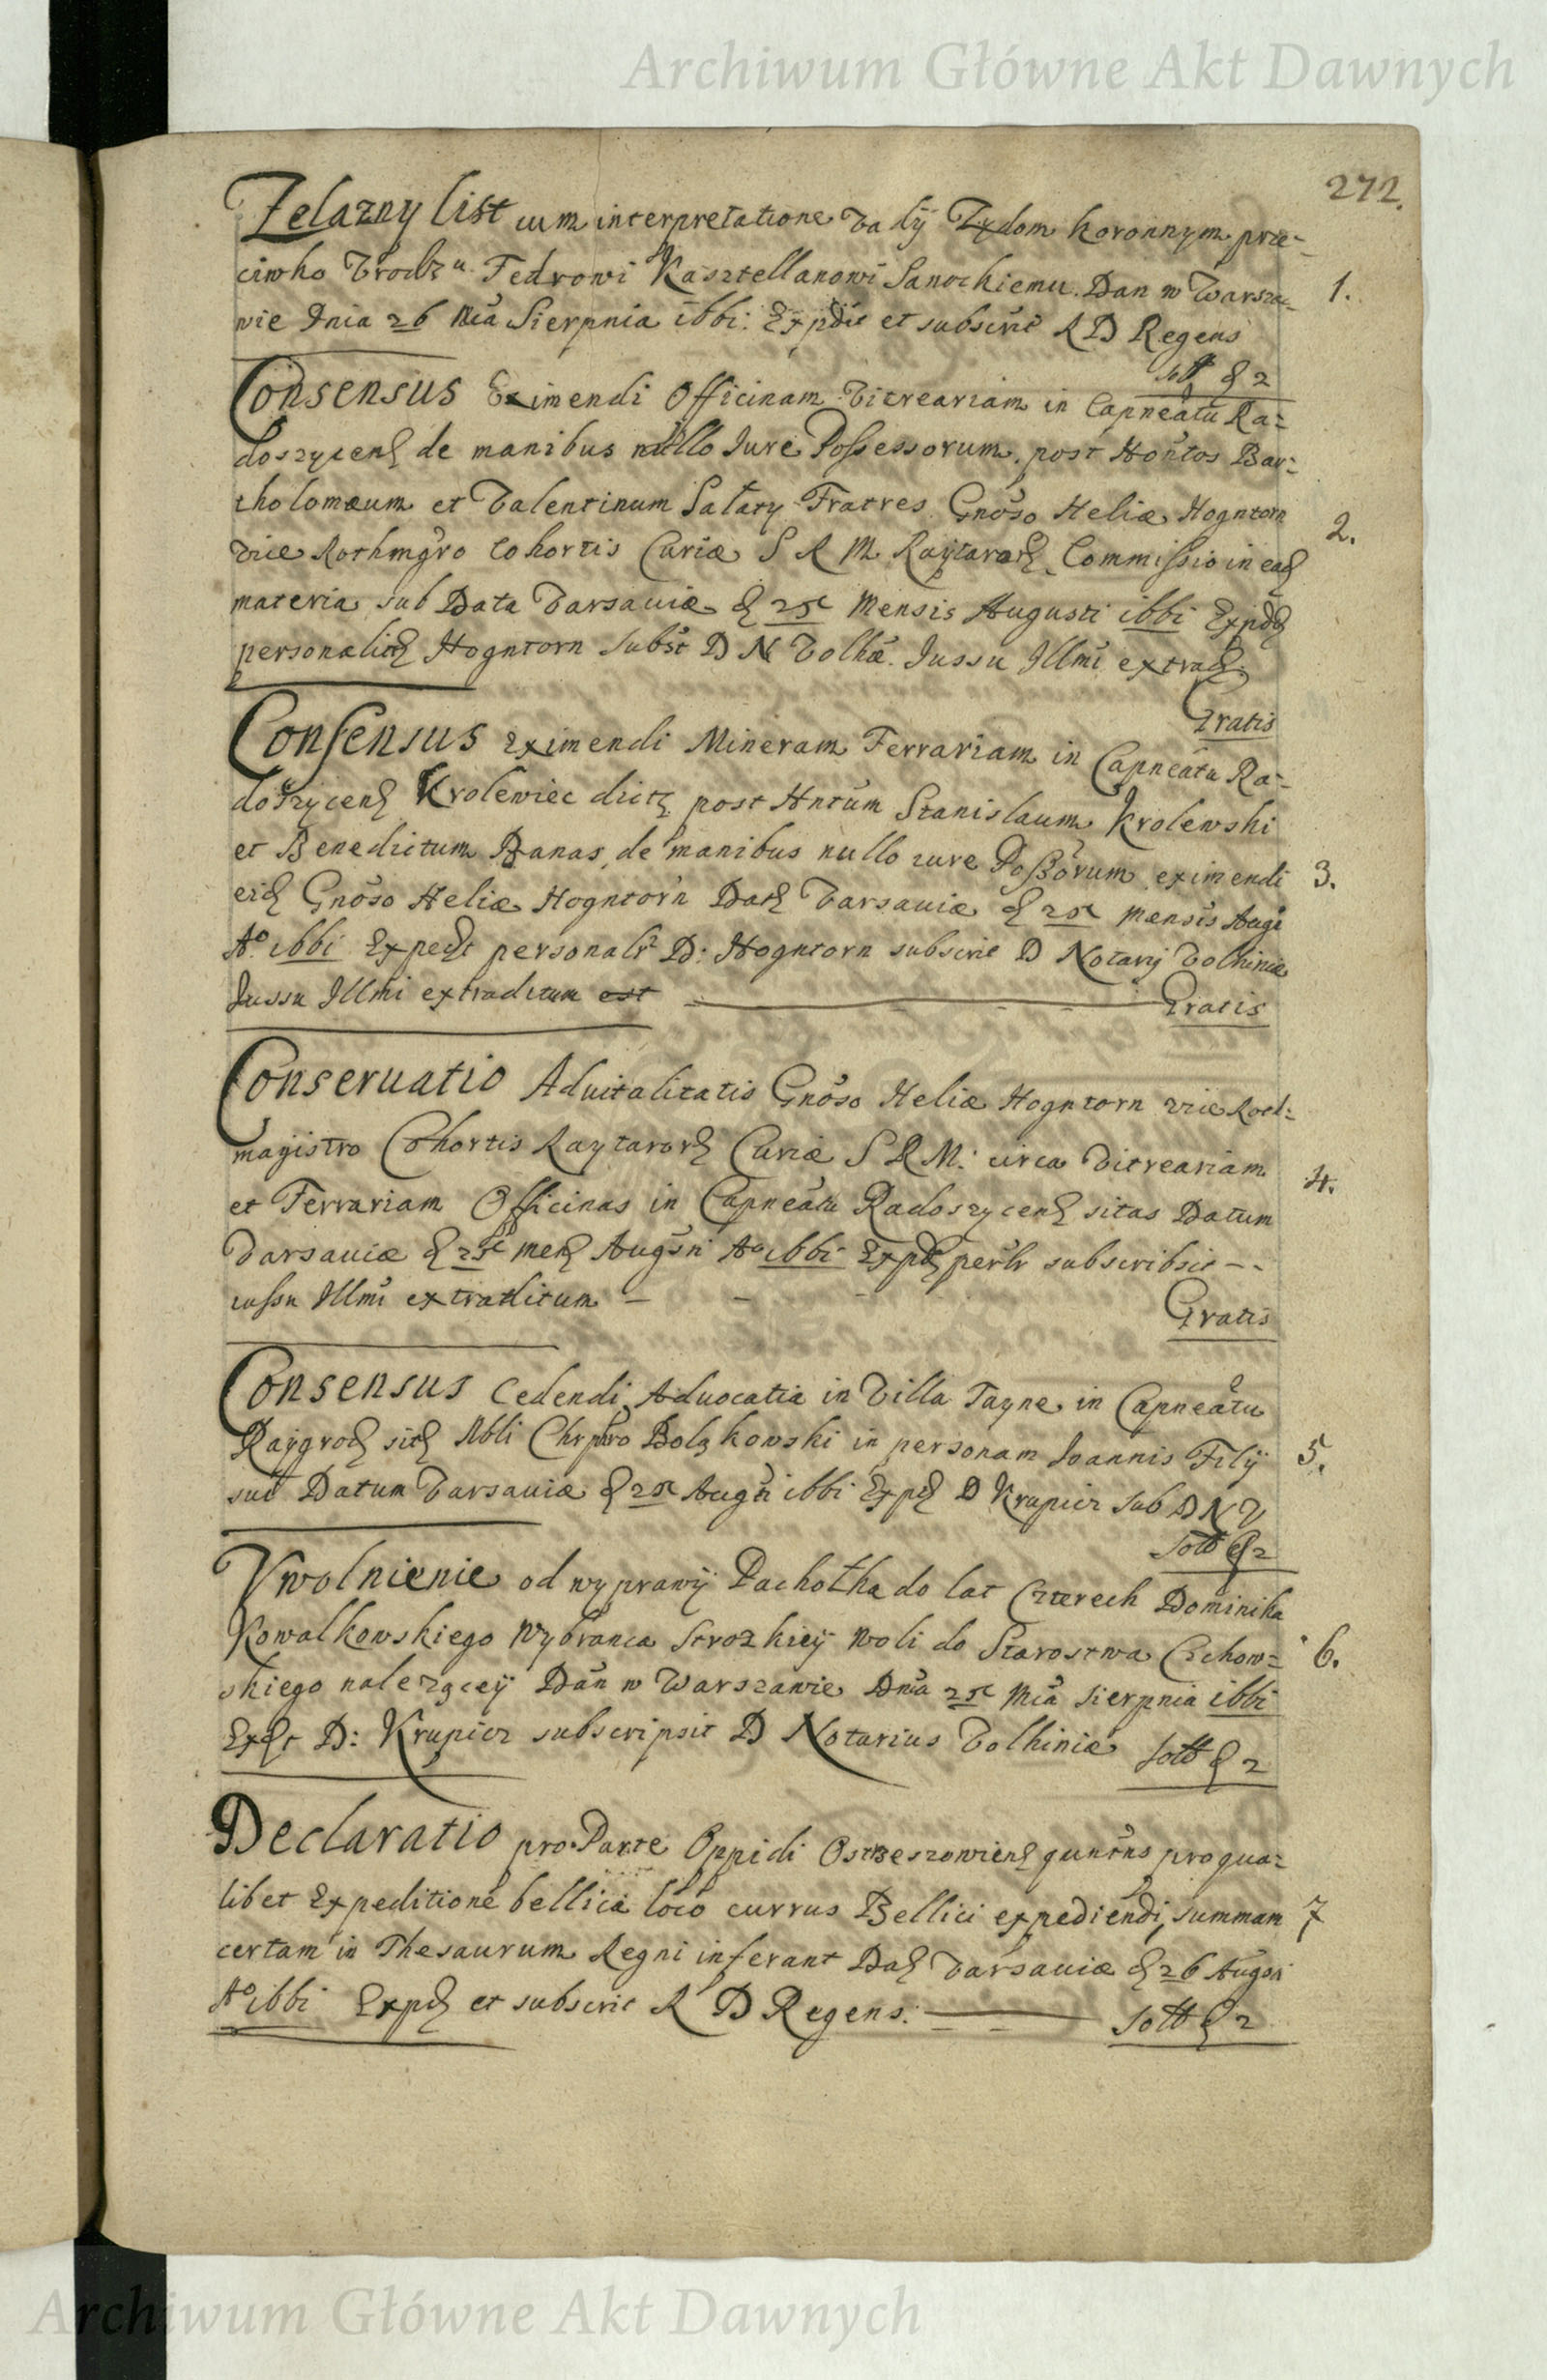 Archiwum Główne Akt Dawnych
272.
Zelazny list cum interpretatione Va dÿ Zydom koronnym prze-
ciwko Urodz u Fedrowi Kasztellanowi Sanockiemu. Dan w Warsza-
wie Dnia 26 Mca Sierpnia ibbi: Expdit et subscrit R D Regens
1.
sott 2
Consensus Eximendi Officinam Vitreariam in Capneatu Ra-
doszycen de manibus nullo Jure Possessorum, post Hontos Bar-
tholomæum et Valentinum Sałaty Fratres Gnoso Heliæ Hogntorn
2.
vice Rothmgro Cohortis Curiæ S R M Raÿtaror Commissio in ead
materia sub Data Varsaviæ d 25 Mensis Augusti ibbi Expd
personalit Hogntorn Subst D N Volhæ. Jussu Illmi extrad
Gratis
Consensus eximendi Mineram Ferrariam in Capneatu Ra-
doszycen Krolewiec dict post Hntum Stanislaum Krolewski
et Benedictum Banas, de manibus nullo iure Possorum eximendi
3.
eid Gnoso Heliæ Hogntorn Dat Varsaviæ d 25 Mensis Augi
Ao ibbi Expedt personalr D: Hogntorn subscrit D Notarÿ Volhiniæ
Jussu Illmi extraditum est Gratis
Conservatio Advitalitatis Gnoso Heliæ Hogntorn vice Rot-
magistro Cohortis Raytaror Curiæ S R M: circa Vitreariam
4.
et Ferrariam Officinas in Capneatu Radoszycen sitas Datum
Varsaviæ d 25 Men Augsti Ao ibbi Expd perlr subscribsit --
iussu Illmi extraditum - - - Gratis
Consensus Cedendi Advocatia in Villa Tayne in Capneatu
Raÿgrod sit Nbli Chrphro Bolzkowski in personam Joannis Filÿ
5.
sui Datum Varsaviæ d 25 Augti ibbi Expd D Krupicz Sub D N V
Sott 2
Vwolnienie od wyprawÿ Pachołka do lat Czterech Dominika
Kowalkowskiego Wybranca Strozkieÿ Woli do Starostwa Czchow-
6.
skiego nalezącey Dan w Warszawie Dnia 25 Mca Sierpnia ibbi
Expt D: Krupicz subscripsit D Notarius Volhiniæ Sott 2
Declaratio pro Parte Oppidi Ostrzeszowien quatus pro qua-
libet Expeditione bellica loco currus Bellici expediendi, summam
7
certam in Thesaurum Regni inferant Dat Varsaviæ d 26 Augsti
Ao ibbi Expd et subscrit R D Regens: Sott 2
Archiwum Główne Akt Dawnych